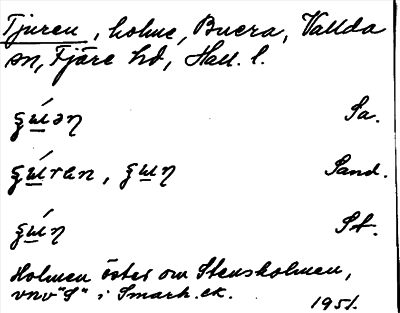 Tjuren, holme, Buera, Vallda
sn, Fjäre hd, Hall. l.
Sa.
Sand.
St.
Holmen öster om Stensholmen,
vnv "S" i Smark. ek.
1951.